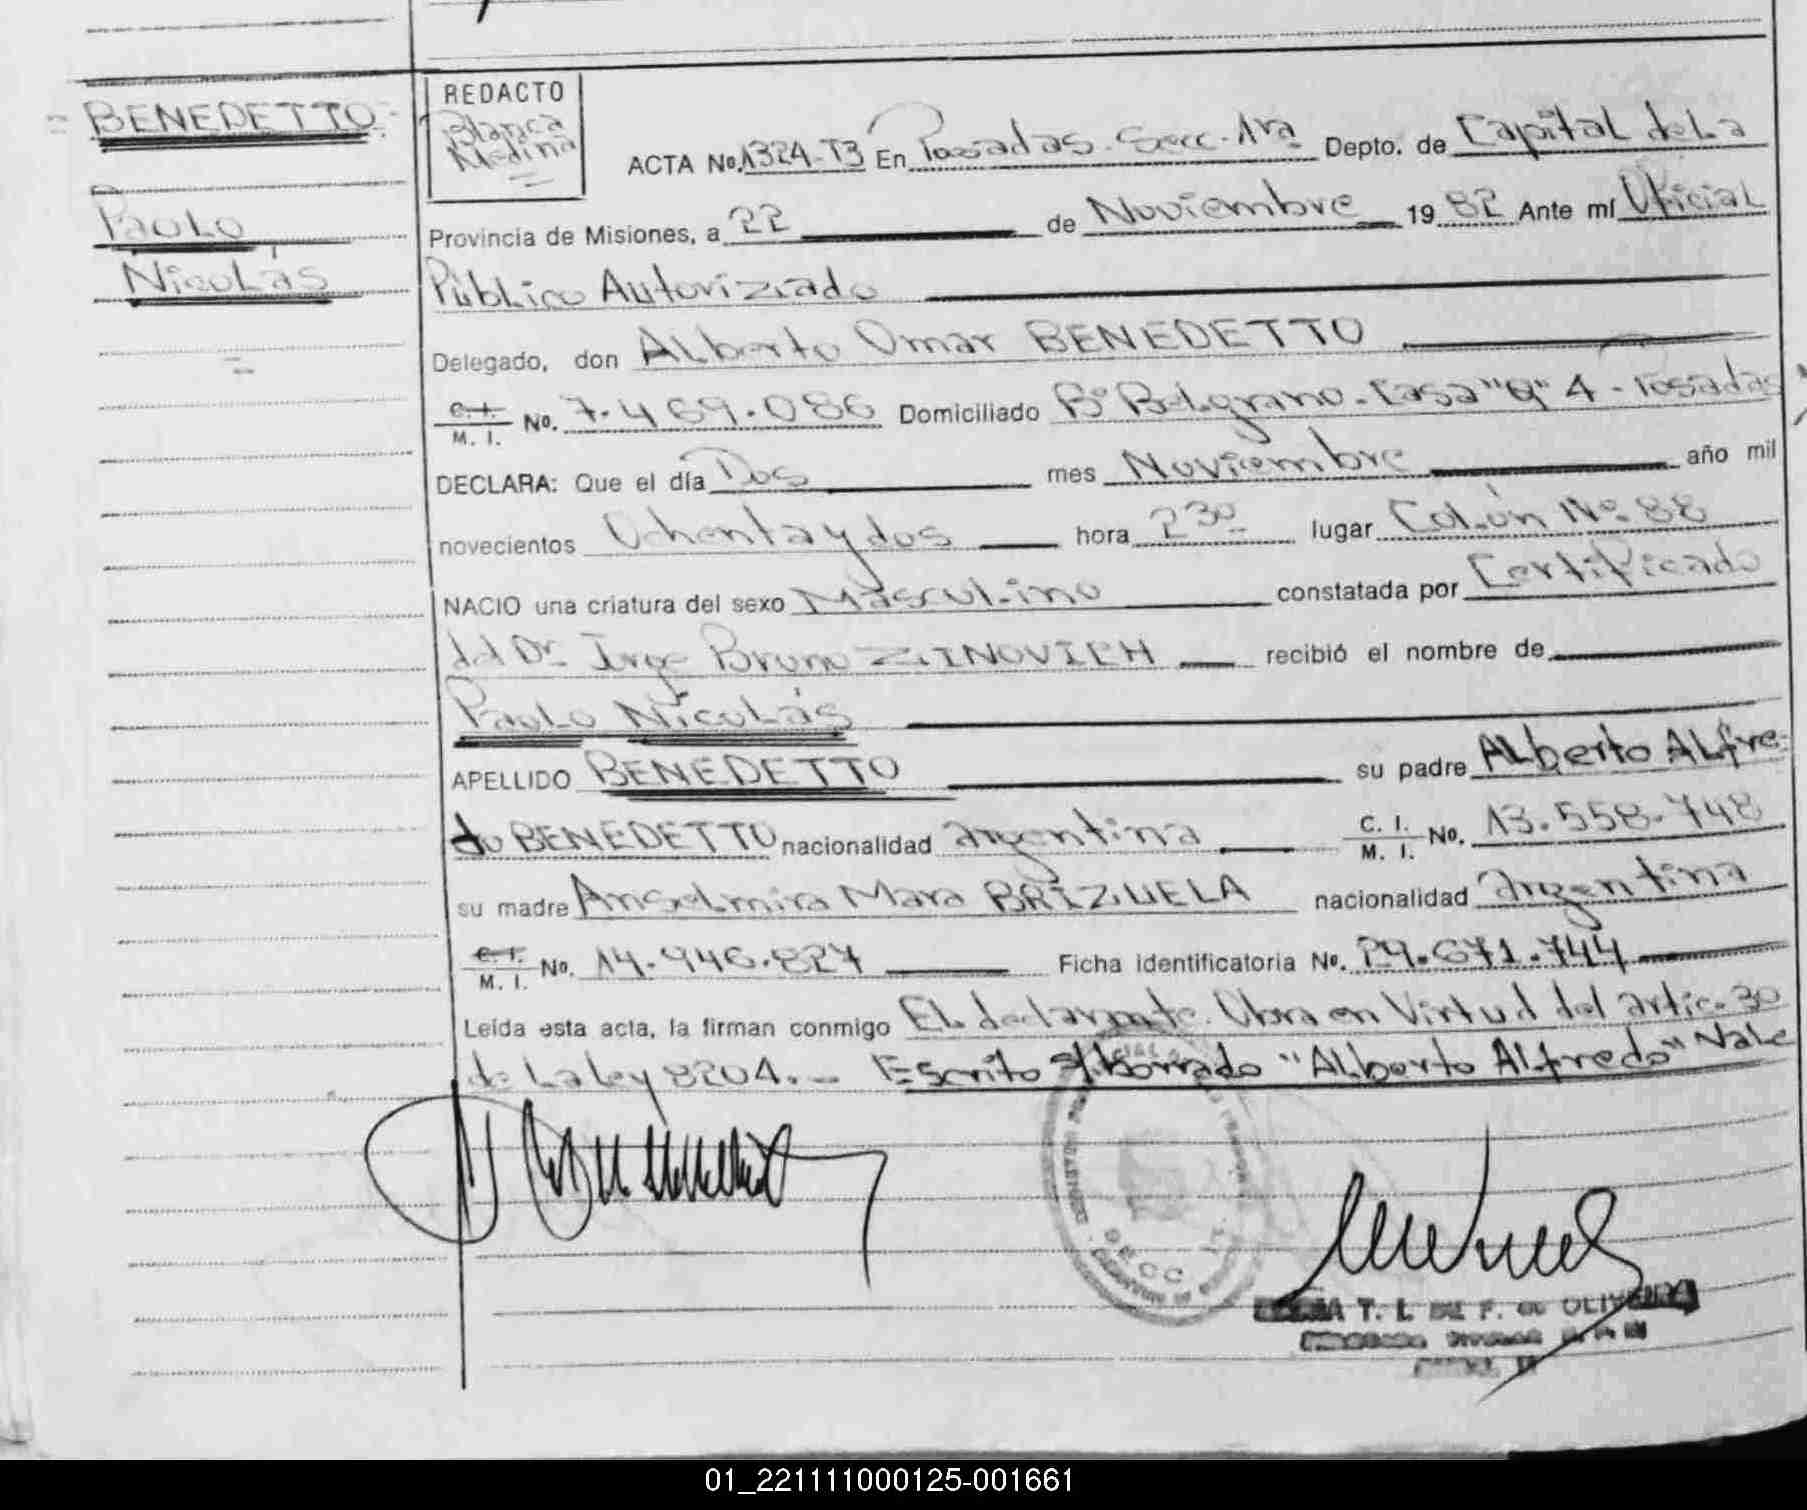 = BENEDETTO =
Paolo
Nicolás
=
REDACTO
Blanca
Medina
=
ACTA No. 1324-T3 En Posadas. Secc. 1ra Depto. de Capital de La
Provincia de Misiones, a 22 de Noviembre 19 82 Ante mí Oficial
Público Autorizado
Delegado, don Alberto Omar BENEDETTO
C. I. / M. I. No. 7.469.086 Domiciliado Bº Belgrano. Casa "Q" 4 - Posadas
DECLARA: Que el día Dos mes Noviembre año mil
novecientos Ochenta y dos hora 2 30 lugar Colón Nº 88
NACIO una criatura del sexo Masculino constatada por Certificado
del Dr. Jorge Bruno ZINOVICH recibió el nombre de
Paolo Nicolás
APELLIDO BENEDETTO su padre Alberto Alfre-
do BENEDETTO nacionalidad argentina C. I. / M. I. No. 13.558.748
su madre Anselmira Mara BRIZUELA nacionalidad argentina
C. I. / M. I. No. 14.946.827 Ficha identificatoria No. 29.671.744
Leída esta acta, la firman conmigo El declarante. Obra en Virtud del artic. 30
de La ley 8204. — Escrito s/borrado "Alberto Alfredo" Vale
T. L. DE F. de OLIVEIRA
01_221111000125-001661